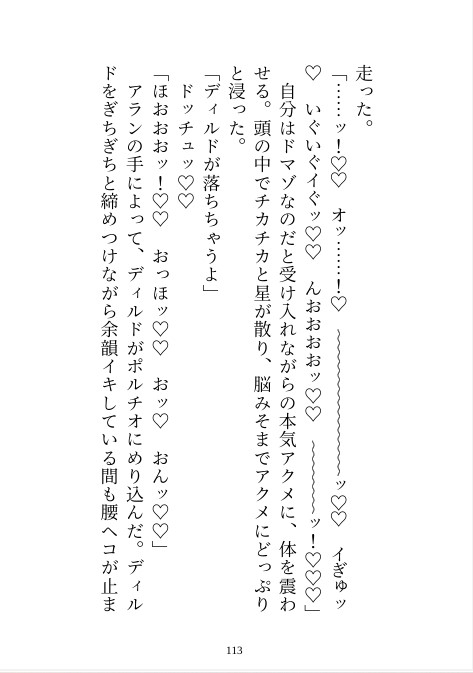 走った。
「……ッ！♡♡　オッ……！♡　～～～～～～～～ッ♡♡　イぎゅッ
♡　いぐいぐイぐッ♡♡　んおおおおッ♡♡　～～～～ッ！♡♡♡」
　自分はドマゾなのだと受け入れながらの本気アクメに、体を震わ
せる。頭の中でチカチカと星が散り、脳みそまでアクメにどっぷり
と浸った。
「ディルドが落ちちゃうよ」
　ドッチュッ♡♡
「ほおおおッ！♡♡　おっほッ♡♡　おッ♡　おんッ♡♡」
　アランの手によって、ディルドがポルチオにめり込んだ。ディル
ドをぎちぎちと締めつけながら余韻イキしている間も腰ヘコが止ま
113